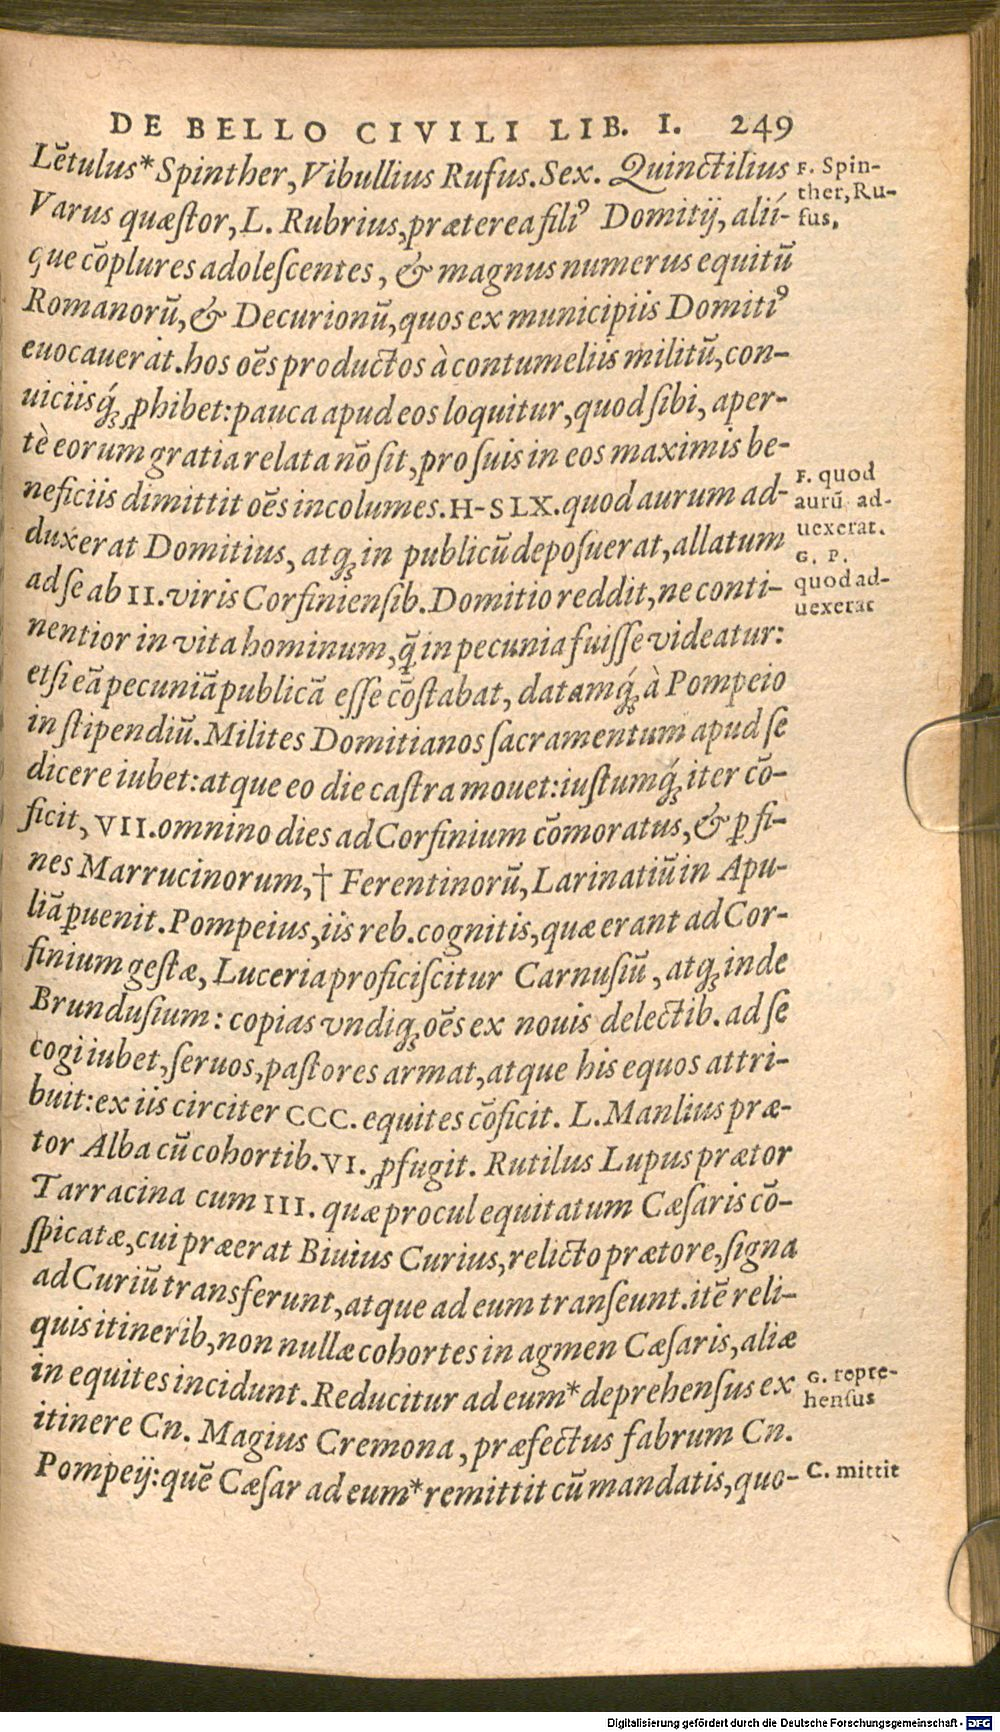 DE BELLO CIVILI LIB. I. 249
Lẽtulus* Spinther, Vibullius Rufus. Sex. Quinctilius
Varus quæſtor, L. Rubrius, præterea filiꝰ Domitij, alií-
que cõplures adoleſcentes, & magnus numerus equitũ
Romanorũ, & Decurionũ, quos ex municipiis Domitiꝰ
euocauerát. hos oẽs productos à contumeliis militũ, con-
uiciisq́ꝫ ꝓhibet: pauca apud eos loquitur, quod ſibi, aper-
tè eorum gratia relata nõ ſit, pro ſuis in eos maximis be-
neficiis dimittit oẽs incolumes. H-S LX. quod aurum ad-
duxerat Domitius, atqꝫ in publicũ depoſuerat, allatum
ad ſe ab II. viris Corfinienſib. Domitio reddit, ne conti-
nentior in vita hominum, ꝗ̃ in pecunia fuiſſe videatur:
etſi eã pecuniã publicã eſſe cõſtabat, datamq́ꝫ à Pompeio
in ſtipendiũ. Milites Domitianos ſacramentum apud ſe
dicere iubet: atque eo die caſtra mouet: iuſtumq́ꝫ iter cõ-
ficit, VII. omnino dies ad Corfinium cõmoratus, & ꝑ fi-
nes Marrucinorum, † Ferentinorũ, Larinatiũ in Apu-
liã ꝑuenit. Pompeius, iis reb. cognitis, quæ erant ad Cor-
finium geſtæ, Luceria proficiſcitur Carnuſiũ, atqꝫ inde
Brunduſium: copias vndiqꝫ oẽs ex nouis delectib. ad ſe
cogi iubet, ſeruos, paſtores armat, atque his equos attri-
buit: ex iis circiter CCC. equites cõficit. L. Manlius præ-
tor Alba cũ cohortib. VI. ꝓfugit. Rutilus Lupus prætor
Tarracina cum III. quæ procul equitatum Cæſaris cõ-
ſpicatæ, cui præerat Biuius Curius, relicto prætore, ſigna
ad Curiũ transferunt, atque ad eum tranſeunt. itẽ reli-
quis itinerib, non nullæ cohortes in agmen Cæſaris, aliæ
in equites incidunt. Reducitur ad eum* deprehenſus ex
itinere Cn. Magius Cremona, præfectus fabrum Cn.
Pompeij: quẽ Cæſar ad eum* remittit cũ mandatis, quo-
F. Spin-
ther, Ru-
fus,
F. quod
aurũ ad-
uexerat.
G. P.
quod ad-
uexerat
G. repre-
henſus
C. mittit
Digitalisierung gefördert durch die Deutsche Forschungsgemeinschaft - DFG